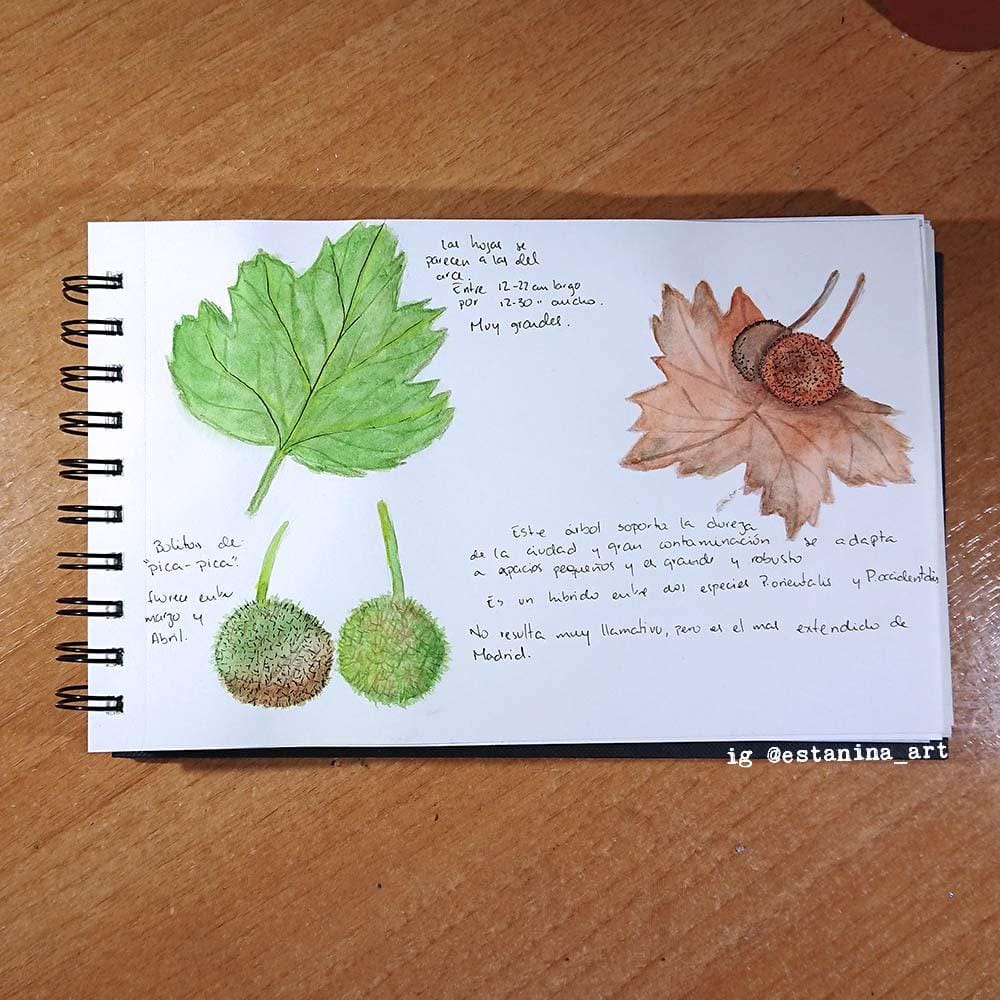 Las hojas se
parecen a las del
arce.
Entre 12-22 cm largo
por 12-30 " ancho.
Muy grandes.
Bolitas de
"pica-pica".
florece entre
marzo y
Abril.
Este árbol soporta la dureza
de la ciudad y gran contaminación se adapta
a espacios pequeños y es grande y robusto
Es un híbrido entre dos especies P.orientalis y P.occidentalis
No resulta muy llamativo, pero es el mas extendido de
Madrid.
ig @estanina_art